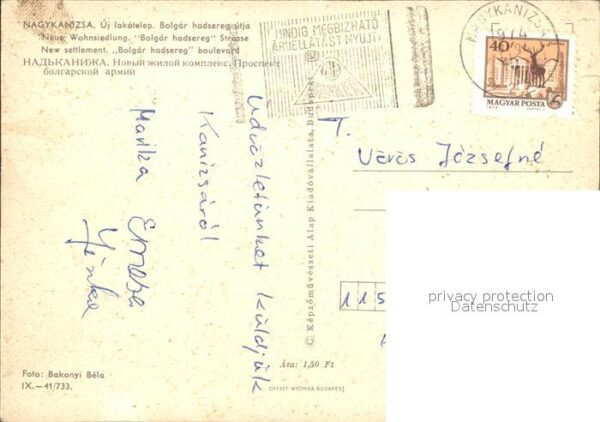 NAGYKANIZSA. Új lakótelep. Bolgár hadsereg útja
Neue Wohnsiedlung. "Bolgár hadsereg" Strasse
New settlement. „Bolgár hadsereg" boulevard
НАДЬКАНИЖА. Новый жилой комплекс. Проспект
болгарской армии
MINDIG MEGBÍZHATÓ
ÁRUELLÁTÁST NYÚJT
NAGYKANIZSA
974
40
MAGYAR POSTA
T.
Vörös Józsefné
115
Üdvözletünket küldjük
Kanizsáról
Marika Emese
© Képzőművészeti Alap Kiadóvállalata, Budapest
privacy protection
Datenschutz
Ára: 1,50 Ft
OFFSET-NYOMDA, BUDAPEST
Foto: Bakonyi Béla
IX.—41/733.